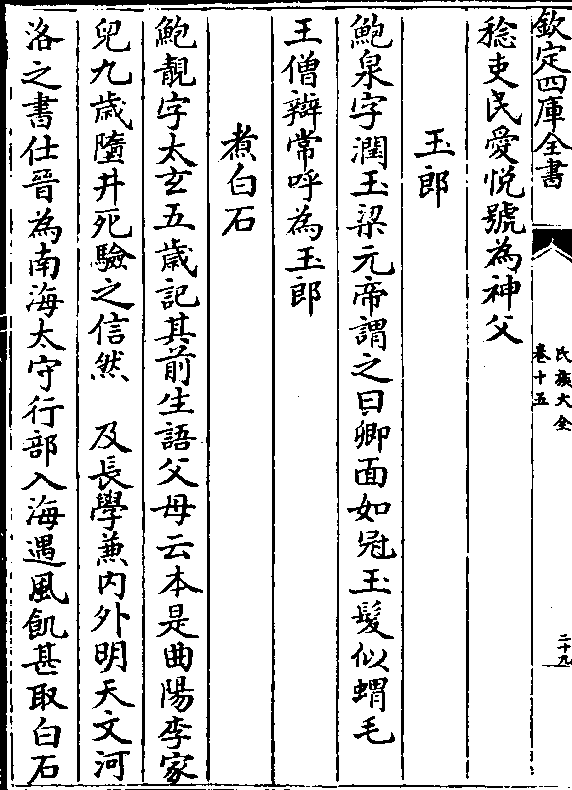 欽定四庫全書
氏族大全
卷十五
二十九
稔吏民愛悅號為神父
玉郎
鮑泉字潤玉梁元帝謂之曰卿面如冠玉髮似蝟毛
王僧辯常呼為玉郎
煮白石
鮑靚字太玄五歲記其前生語父母云本是曲陽李家
兒九歲墮井死驗之信然 及長學兼內外明天文河
洛之書仕晉為南海太守行部入海遇風飢甚取白石